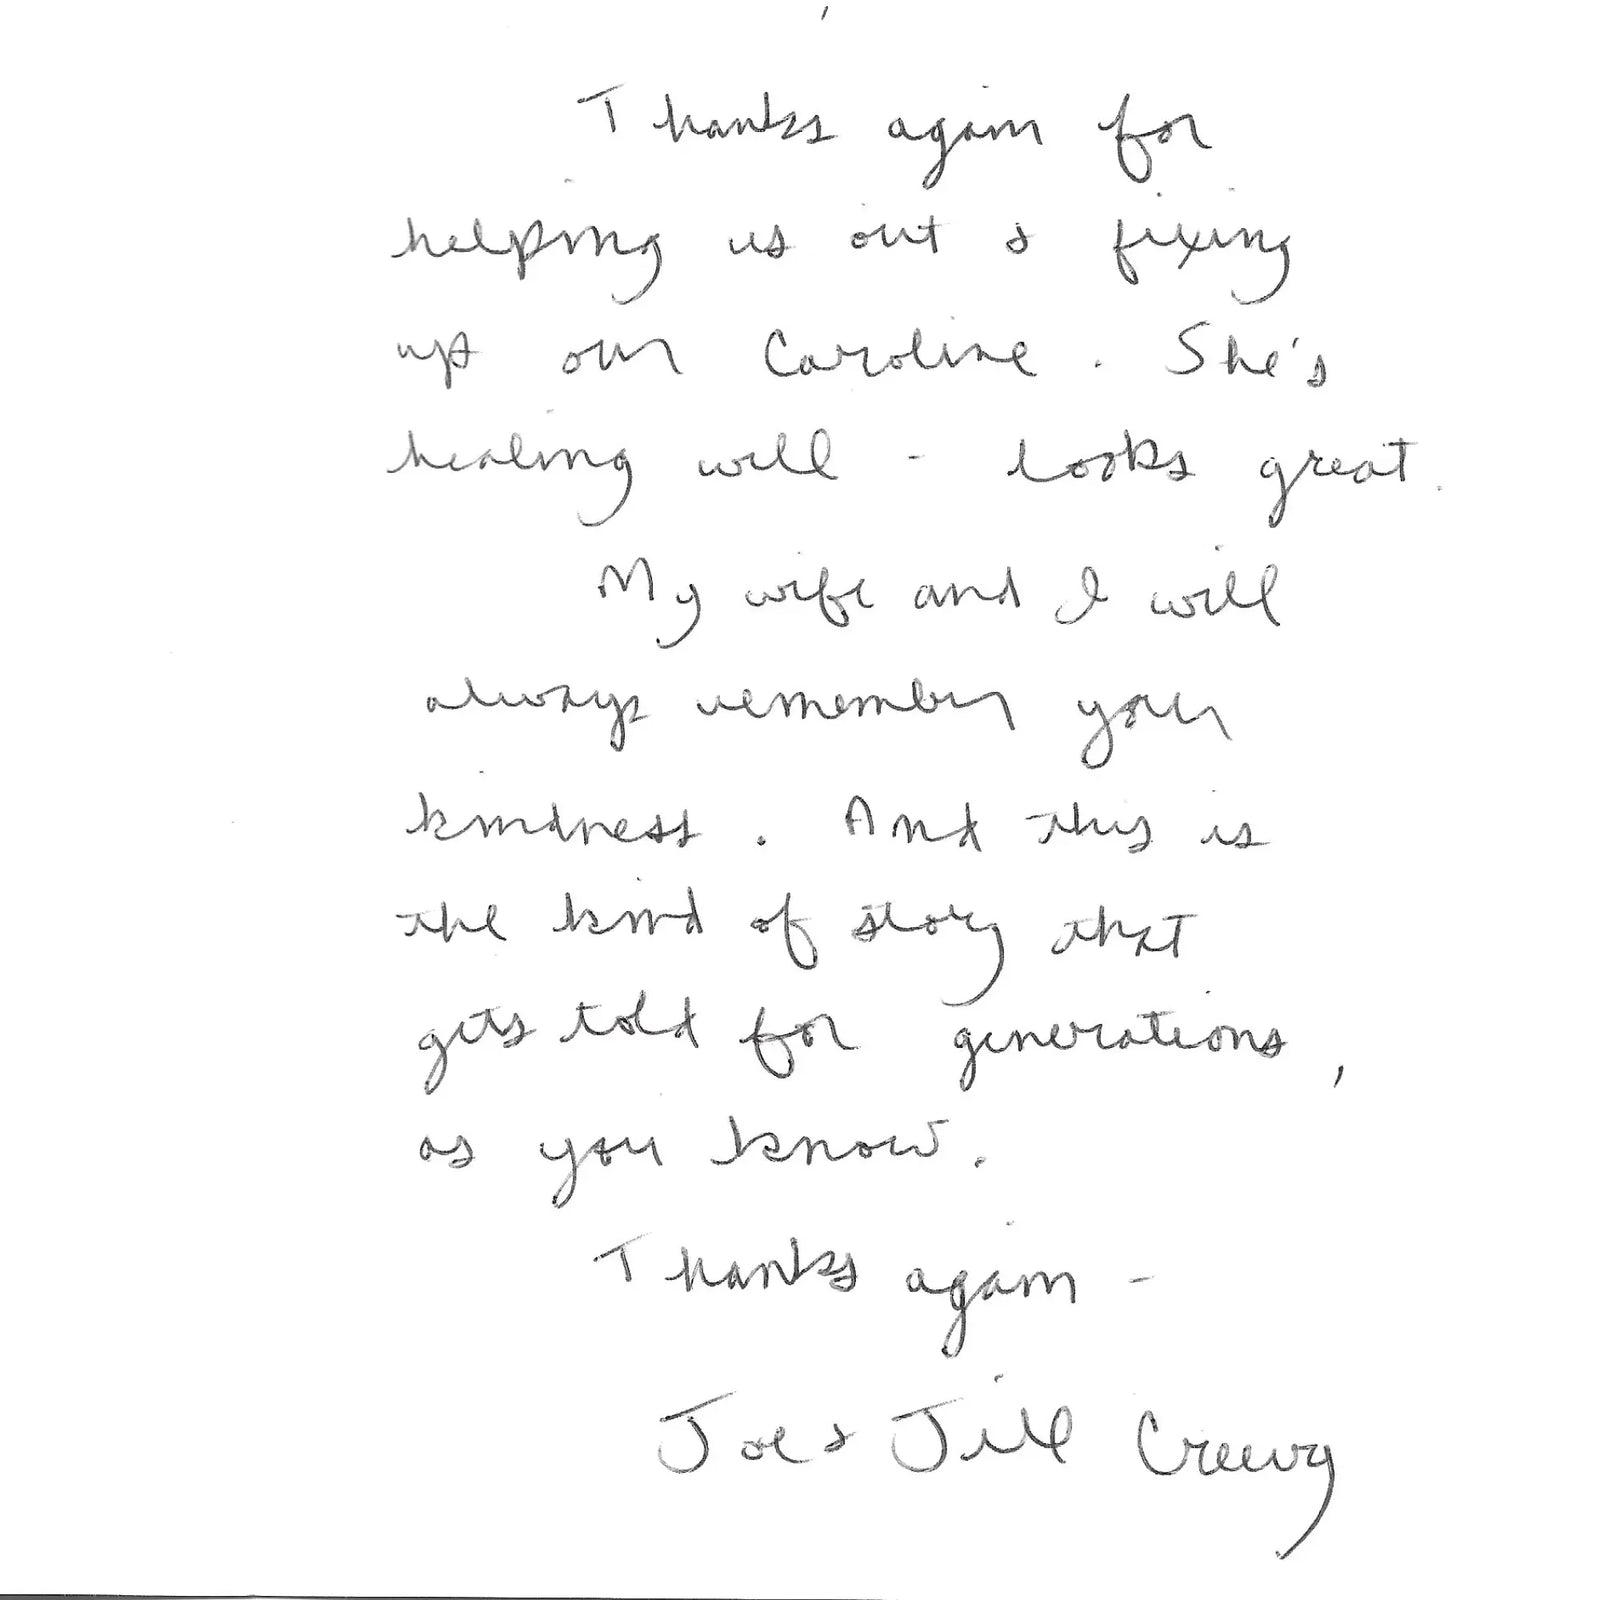 Thanks again for
helping us out & fixing
up our Caroline. She's
healing well - looks great.
My wife and I will
always remember your
kindness. And this is
the kind of story that
gets told for generations,
as you know.
Thanks again -
Joe & Jill Creevy